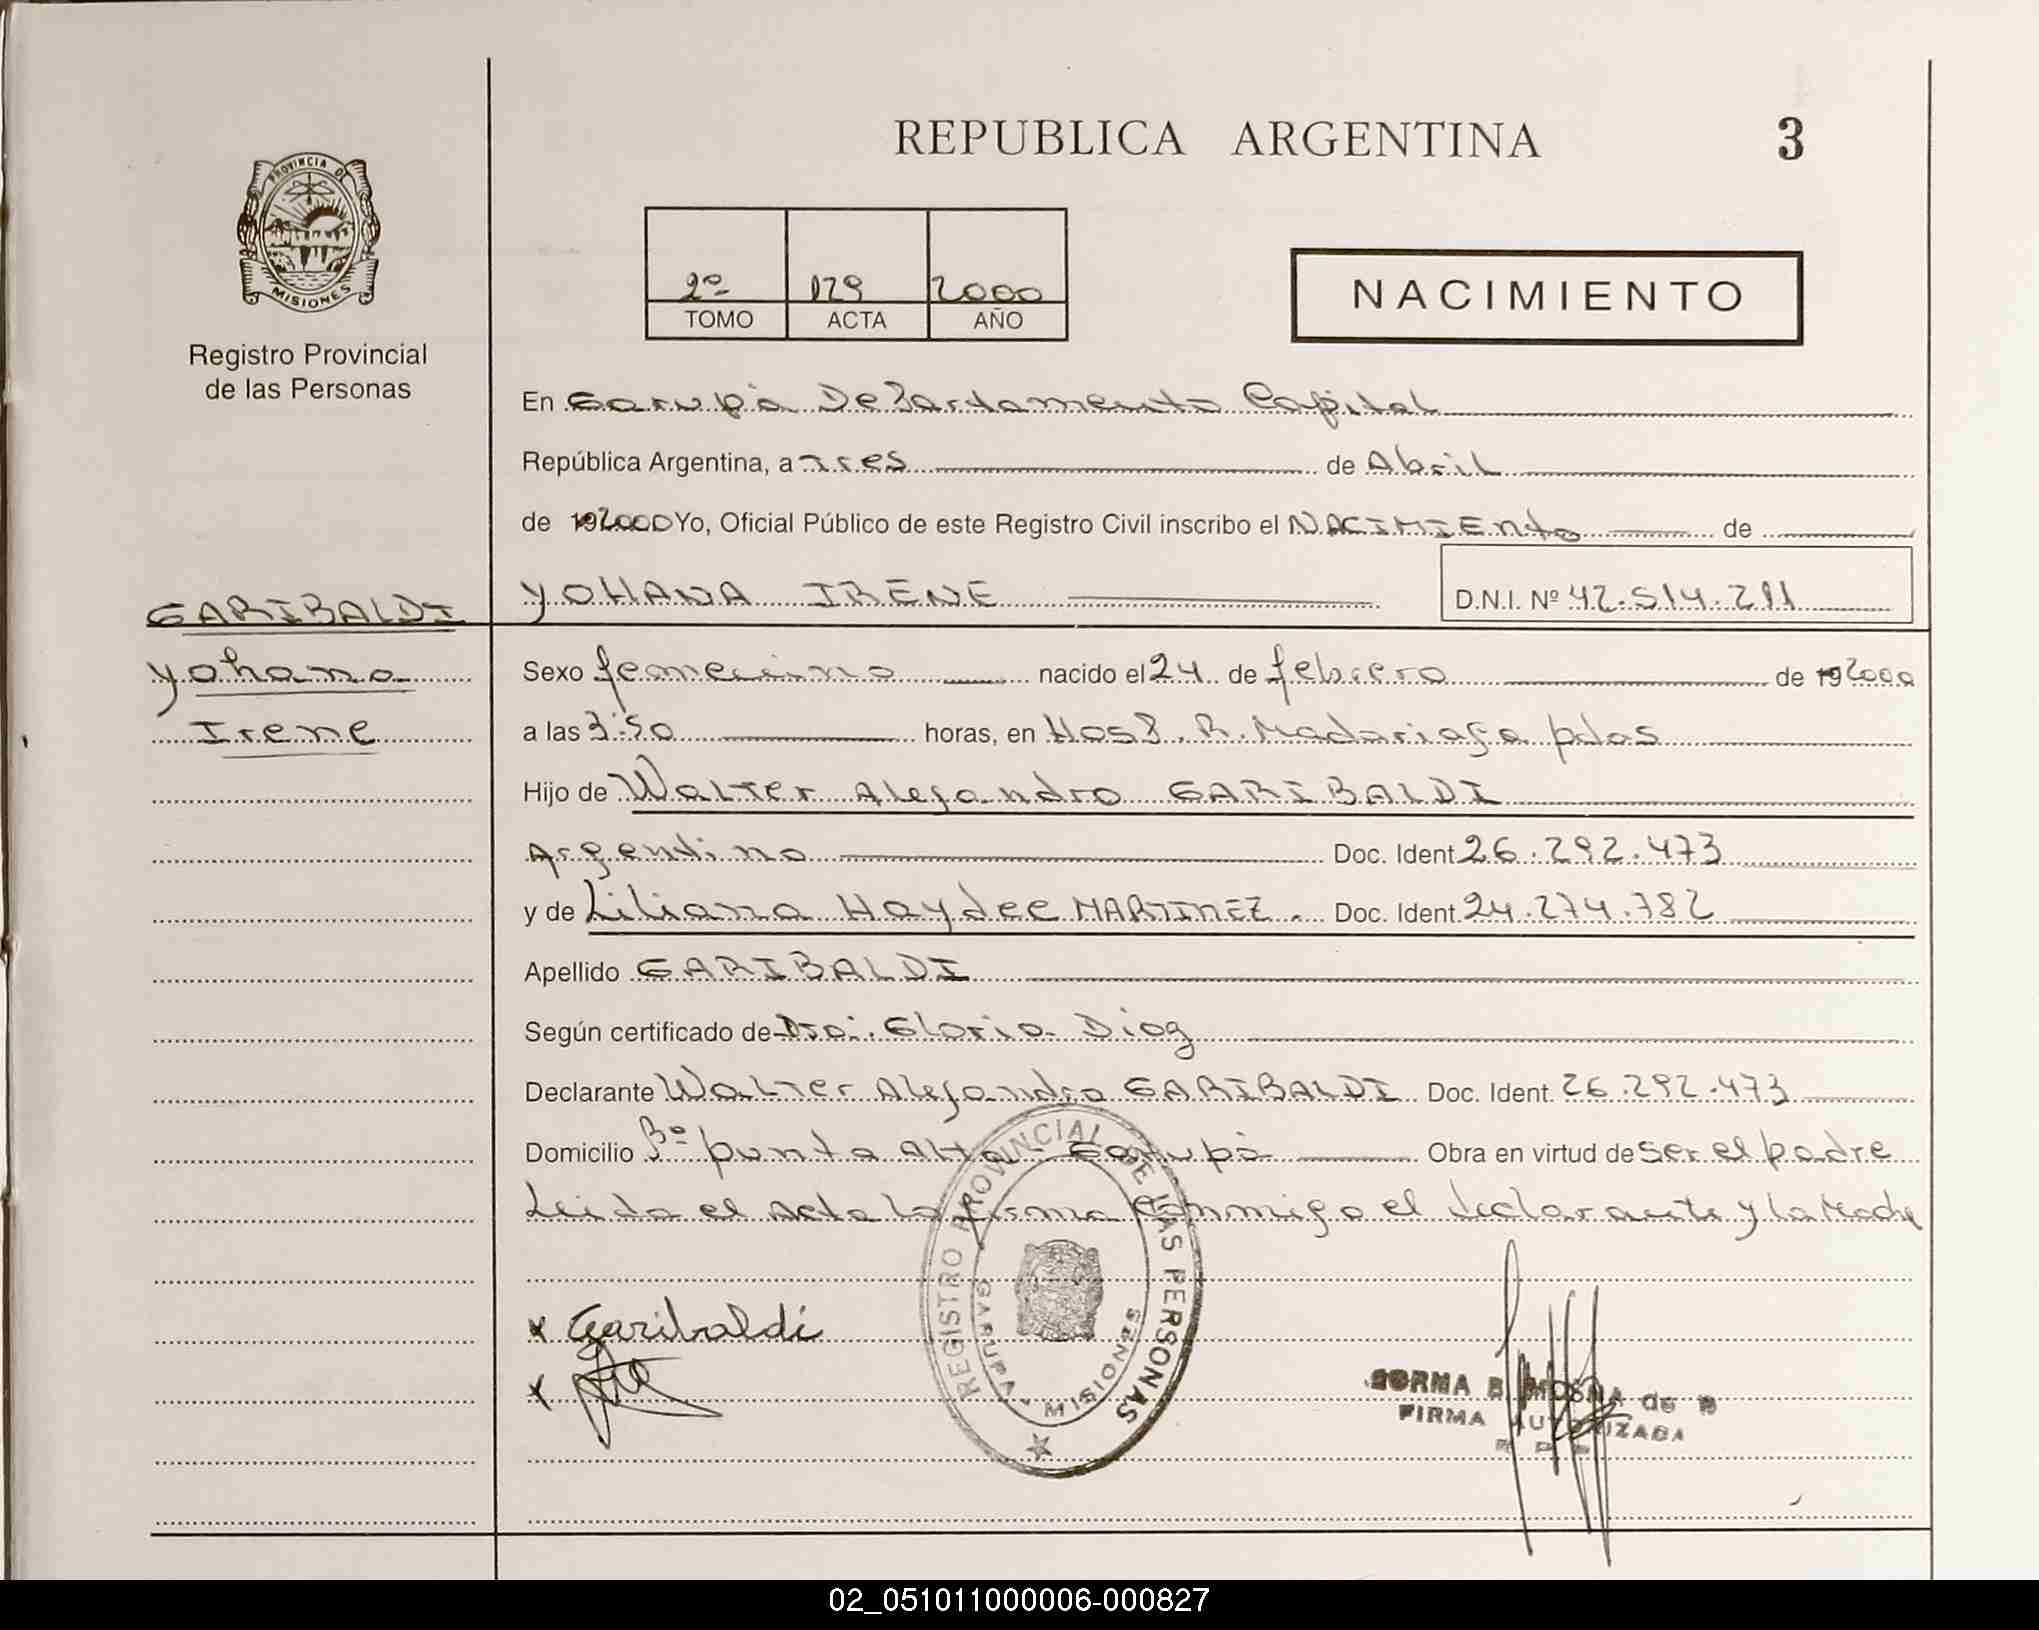 REPUBLICA ARGENTINA 3
PROVINCIA DE
MISIONES
Registro Provincial
de las Personas
2º 129 2000
TOMO ACTA AÑO
NACIMIENTO
En Garupá Departamento Capital
República Argentina, a Tres de Abril
de 192000 Yo, Oficial Público de este Registro Civil inscribo el NACIMIENTO de
GARIBALDI
Yohana
Irene
YOHANA IRENE D.N.I. Nº 42.514.211
Sexo femenino nacido el 24 de febrero de 192000
a las 3:50 horas, en Hosp. R. Madariaga pdas
Hijo de Walter Alejandro GARIBALDI
Argentino Doc. Ident 26.292.473
y de Liliana Haydee MARTINEZ Doc. Ident. 24.274.782
Apellido GARIBALDI
Según certificado de Dra. Gloria Diaz
Declarante Walter Alejandro GARIBALDI Doc. Ident. 26.292.473
Domicilio Bº punta Alta Garupá Obra en virtud de ser el padre
Leida el Acta la firma conmigo el declarante y la Madre
REGISTRO PROVINCIAL DE LAS PERSONAS
GARUPA - MISIONES
x Garibaldi
x
NORMA B. MOSNA de
FIRMA AUTORIZADA
02_051011000006-000827